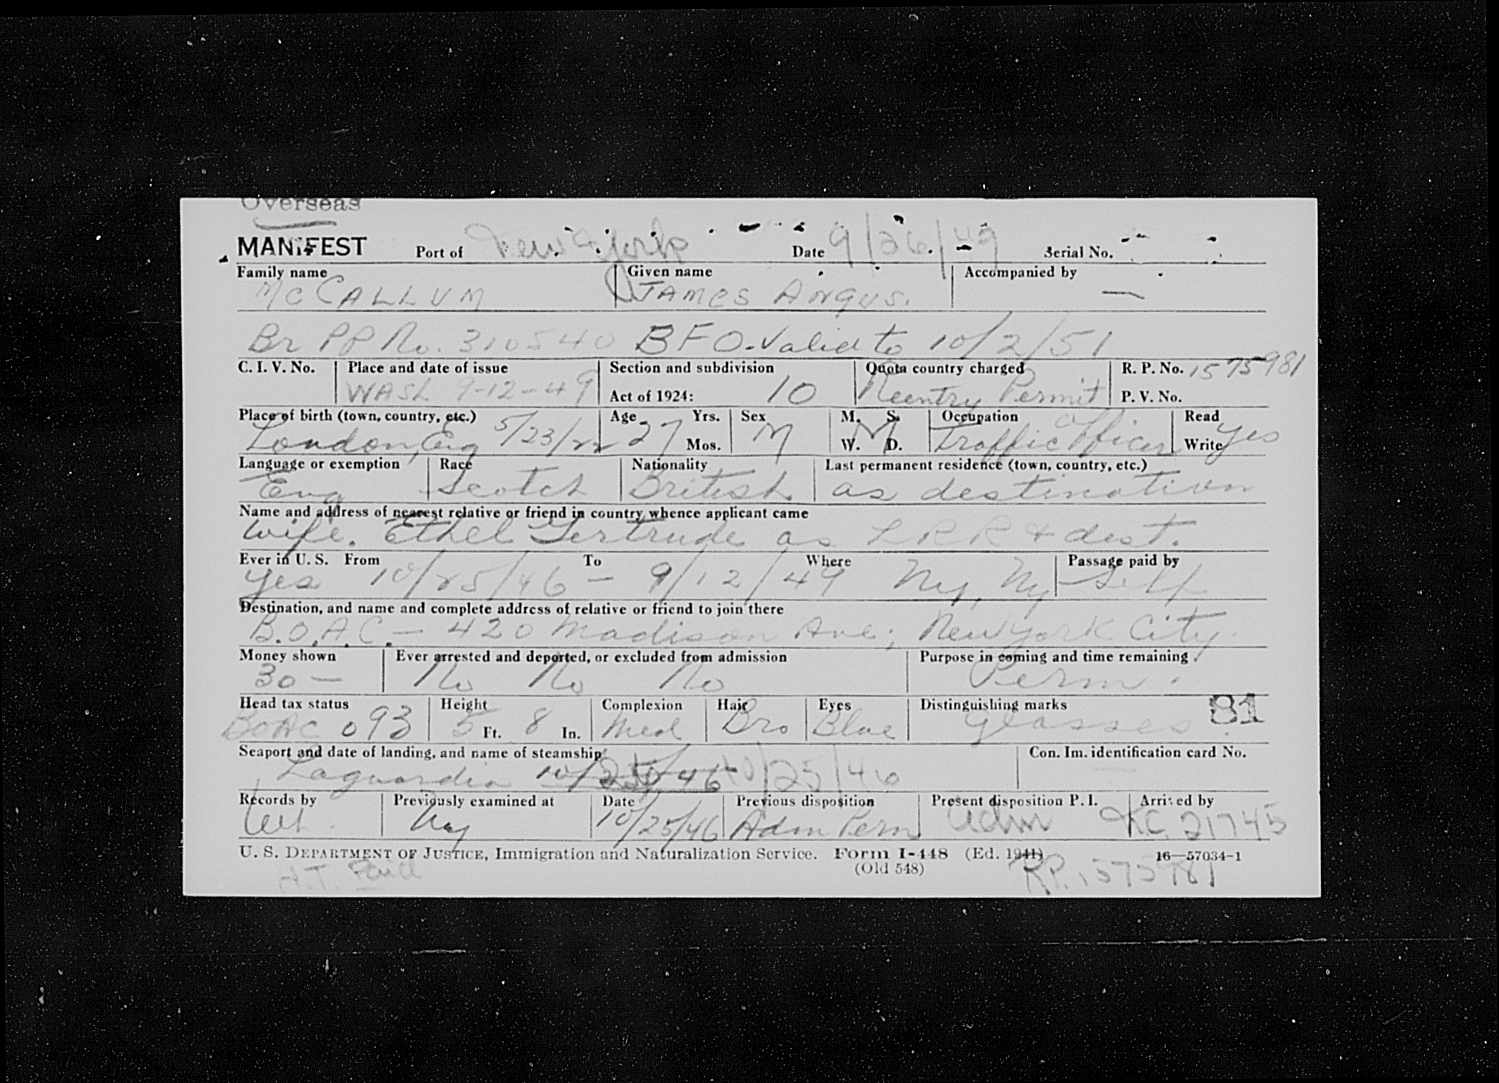 Overseas
MANIFEST Port of New York Date 9/26/49 Serial No.
Family name Given name Accompanied by
McCALLUM JAMES ANGUS. —
Br PP No. 310540 BFO. Valid to 10/2/51
C. I. V. No. Place and date of issue Section and subdivision Quota country charged R. P. No. 1575981
WASH 9-12-49 Act of 1924: 10 Reentry Permit P. V. No.
Place of birth (town, country, etc.) Age Yrs. Sex M. S. Occupation Read
London, Eng 5/23/22 27 Mos. M M W. D. Traffic Officer Write Yes
Language or exemption Race Nationality Last permanent residence (town, country, etc.)
Eng Scotch British as destination
Name and address of nearest relative or friend in country whence applicant came
wife. Ethel Gertrude as L P R & dest.
Ever in U. S. From To Where Passage paid by
Yes 10/25/46 – 9/12/49 Ny, Ny Self
Destination, and name and complete address of relative or friend to join there
B.O.A.C. – 420 Madison Ave; New York City.
Money shown Ever arrested and deported, or excluded from admission Purpose in coming and time remaining
30 — No No No Perm.
Head tax status Height Complexion Hair Eyes Distinguishing marks
BOAC 093 5 Ft. 8 In. Med Bro Blue glasses 81
Seaport and date of landing, and name of steamship Con. Im. identification card No.
Laguardia 10/25/46 10/25/46
Records by Previously examined at Date Previous disposition Present disposition P. I. Arrived by
Ny 10/25/46 Adm Perm adm KC 21745
U. S. DEPARTMENT OF JUSTICE, Immigration and Naturalization Service. Form I-448 (Ed. 1941) 16—57034-1
(Old 548)
H.T. Paid RP. 1575981